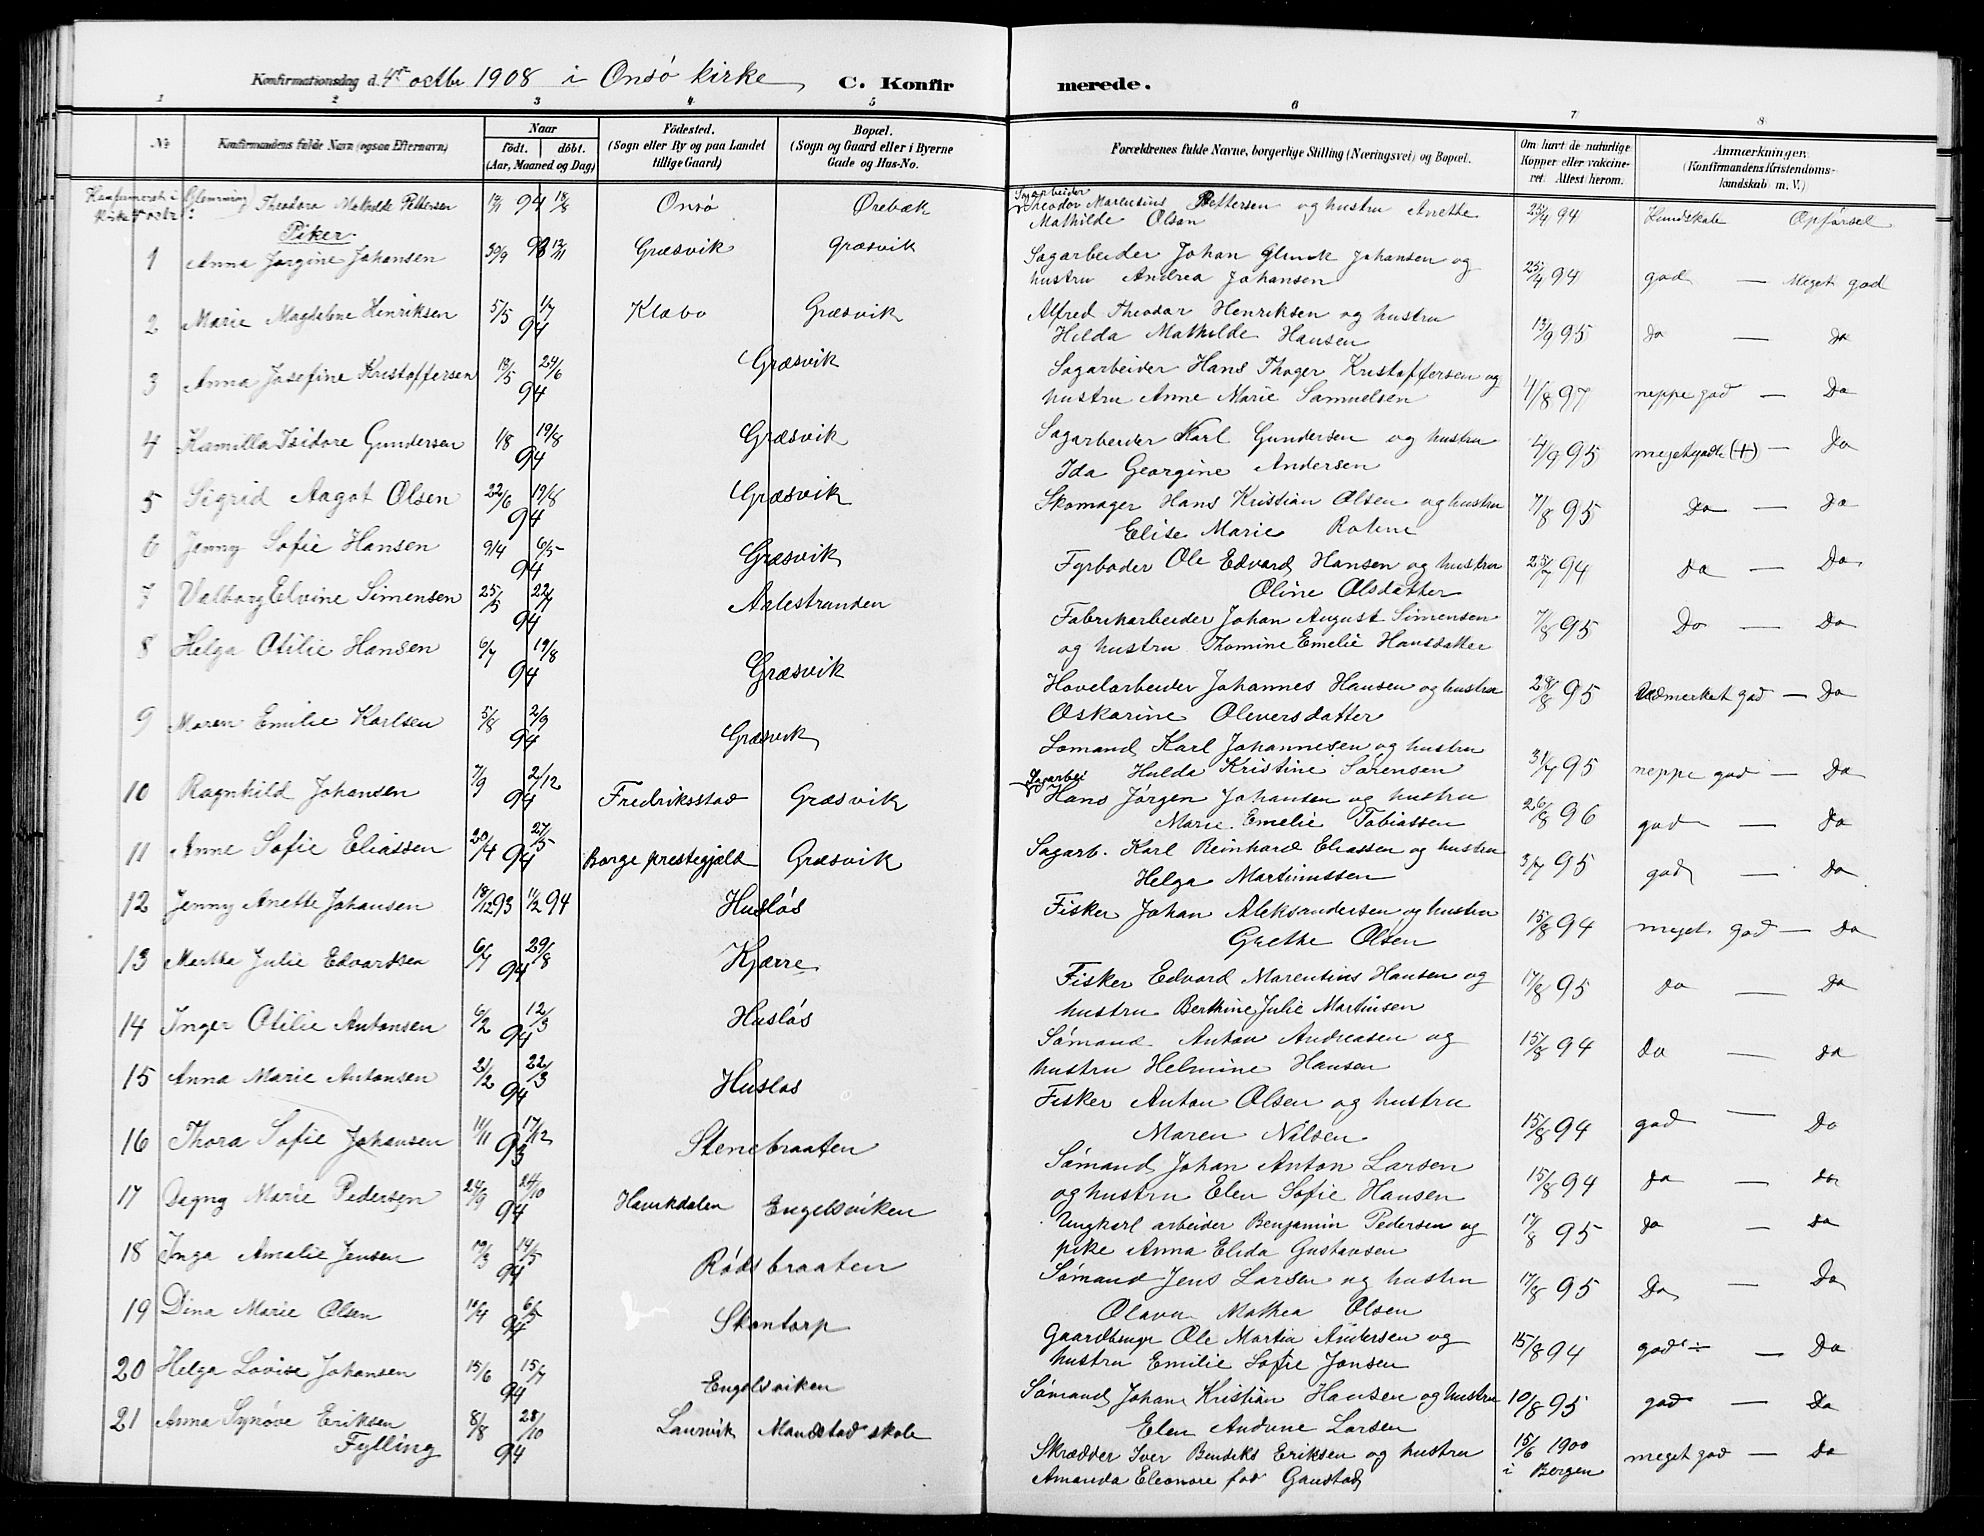 Konfirmationsdag d. 4de octbr 1908 i Onsö kirke C. Konfirmerede.
1 2 3 4 5 6 7 8
№ Konfirmandens fulde Navn (ogsaa Efternavn) Naar födt. döbt. (Aar, Maaned og Dag) Födested. (Sogn eller By og paa Landet tillige Gaard) Bopæl. (Sogn og Gaard eller i Byerne Gade og Hus-No. Forældrenes fulde Navne, borgerlige Stilling (Næringsvei) og Bopæl. Om havt de naturlige Kopper eller vaccineret. Attest herom. Anmærkninger. (Konfirmandens Kristendomskundskab m. V.)
Konfirmeret i Glemming kirke
Theodora Mathilde Pettersen 94 Onsö Ørebæk Sagarbeider Theodor Marentius Pettersen og hustru Anette 25/4 94 Kundskab Opförsel
Mathilde Olsen
Piker
1 Anna Jørgine Johansen 30/9 93 Græsvik Græsvik Sagarbeider Johan Johansen og
hustru Andrea Johansen 25/4 94 god — Meget god
2 Marie Magdalene Henriksen 5/5 1/7 94 Klæbo Græsvik Alfred Theodor Henriksen og hustru
Hilda Mathilde Hansen 13/9 95 do — do
3 Anna Josefine Kristoffersen 24/6 94 Græsvik Sagarbeider Hans Thoger Kristoffersen og
hustru Anne Marie Samuelsen 1/8 97 neppe god — Do
4 Kamilla Isidore Gundersen 1/8 19/8 94 Græsvik Sagarbeider Karl Gundersen og hustru
Ida Georgine Andersen 4/9 95 meget godt (+) — Do
5 Sigrid Aagot Olsen 22/6 19/8 94 Græsvik Skomager Hans Kristian Olsen og hustru 7/8 95 Do — Do
Elise Marie
6 Jenny Sofie Hansen 9/4 6/5 94 Græsvik Fyrböder Ole Edvard Hansen og hustru 25/7 94 Do — Do
Oline Olsdatter
7 Valborg Elvine Simensen 25/5 22/7 94 Aalestranden Fabrikarbeider Johan August Simensen 7/8 95 Do — Do
og hustru Thomine Emelie Hansdatter
8 Helga Otilie Hansen 6/7 19/8 94 Græsvik Hövelarbeider Johannes Hansen og hustru 29/8 95 Udmerket god — Do
Oskarine Oliversdatter
9 Maren Emilie Karlsen 5/8 2/9 94 Græsvik Sömand Karl Johannesen og hustru
Hulda Kristine Sørensen 31/7 95 neppe god — Do
10 Ragnhild Johansen 7/9 2/12 94 Fredriksstad Græsvik Sagarbei Hans Jørgen Johansen og hustru
Marie Emelie Tobiassen 26/8 96 god — Do
11 Anne Sofie Eliassen 20/4 27/5 94 Borge prestegjæld Græsvik Sagarb. Karl Reinhard Eliassen og hustru 3/7 95 god — Do
Helga Martinussen
12 Jenny Anette Johansen 18/12 93 11/2 94 Huslös Fisker Johan Aleksandersen og hustru 15/8 94 meget god — Do
Grethe Olsen
13 Marthe Julie Edvardsen 6/7 29/8 94 Kjærre Fisker Edvard Marentius Hansen og 17/8 95 Do — Do
hustru Berthine Julie Martinsen
14 Inger Otilie Antonsen 6/2 12/3 94 Huslös Sömand Anton Andreasen og 15/8 94 do — do
hustru Helmine Hansen
15 Anna Marie Antonsen 21/2 22/3 94 Huslös Fisker Anton Olsen og hustru
Maren Nilsen 15/8 94 god — Do
16 Thora Sofie Johansen 11/11 17/12 93 Stenebraaten Sömand Johan Anton Larsen
og hustru Elen Sofie Hansen 15/8 94 do — do
17 Dagny Marie Pedersen 24/9 24/10 94 Haukdalen Engelsviken Ungkarl arbeider Benjamin Pedersen og 17/8 95 do — do
pike Anna Elida Gustavsen
18 Inga Amalie Jensen 19/3 14/5 94 Rödsbraaten Sömand Jens Larsen og hustru 17/8 95 Do — Do
Olava Mathea Olsen
19 Dina Marie Olsen 10/4 6/5 94 Skontorp Gaardbruger Ole Martin Andersen og 15/8 94 god ÷ — Do
hustru Emilie Sofie Jonsen
20 Helga Lovise Johansen 15/6 15/7 94 Engelsviken Sömand Johan Kristian Hansen og hustru 10/8 95 god — Do
Elen Andrine Larsen
21 Anna Synöve Eriksen 8/8 28/10 94 Laurvik Mandstad skole Skrædder Iver Bendiks Eriksen og hustru 15/6 1900 meget god — Do
Fylling Amanda Eleonore fød Gaustad i Bergen